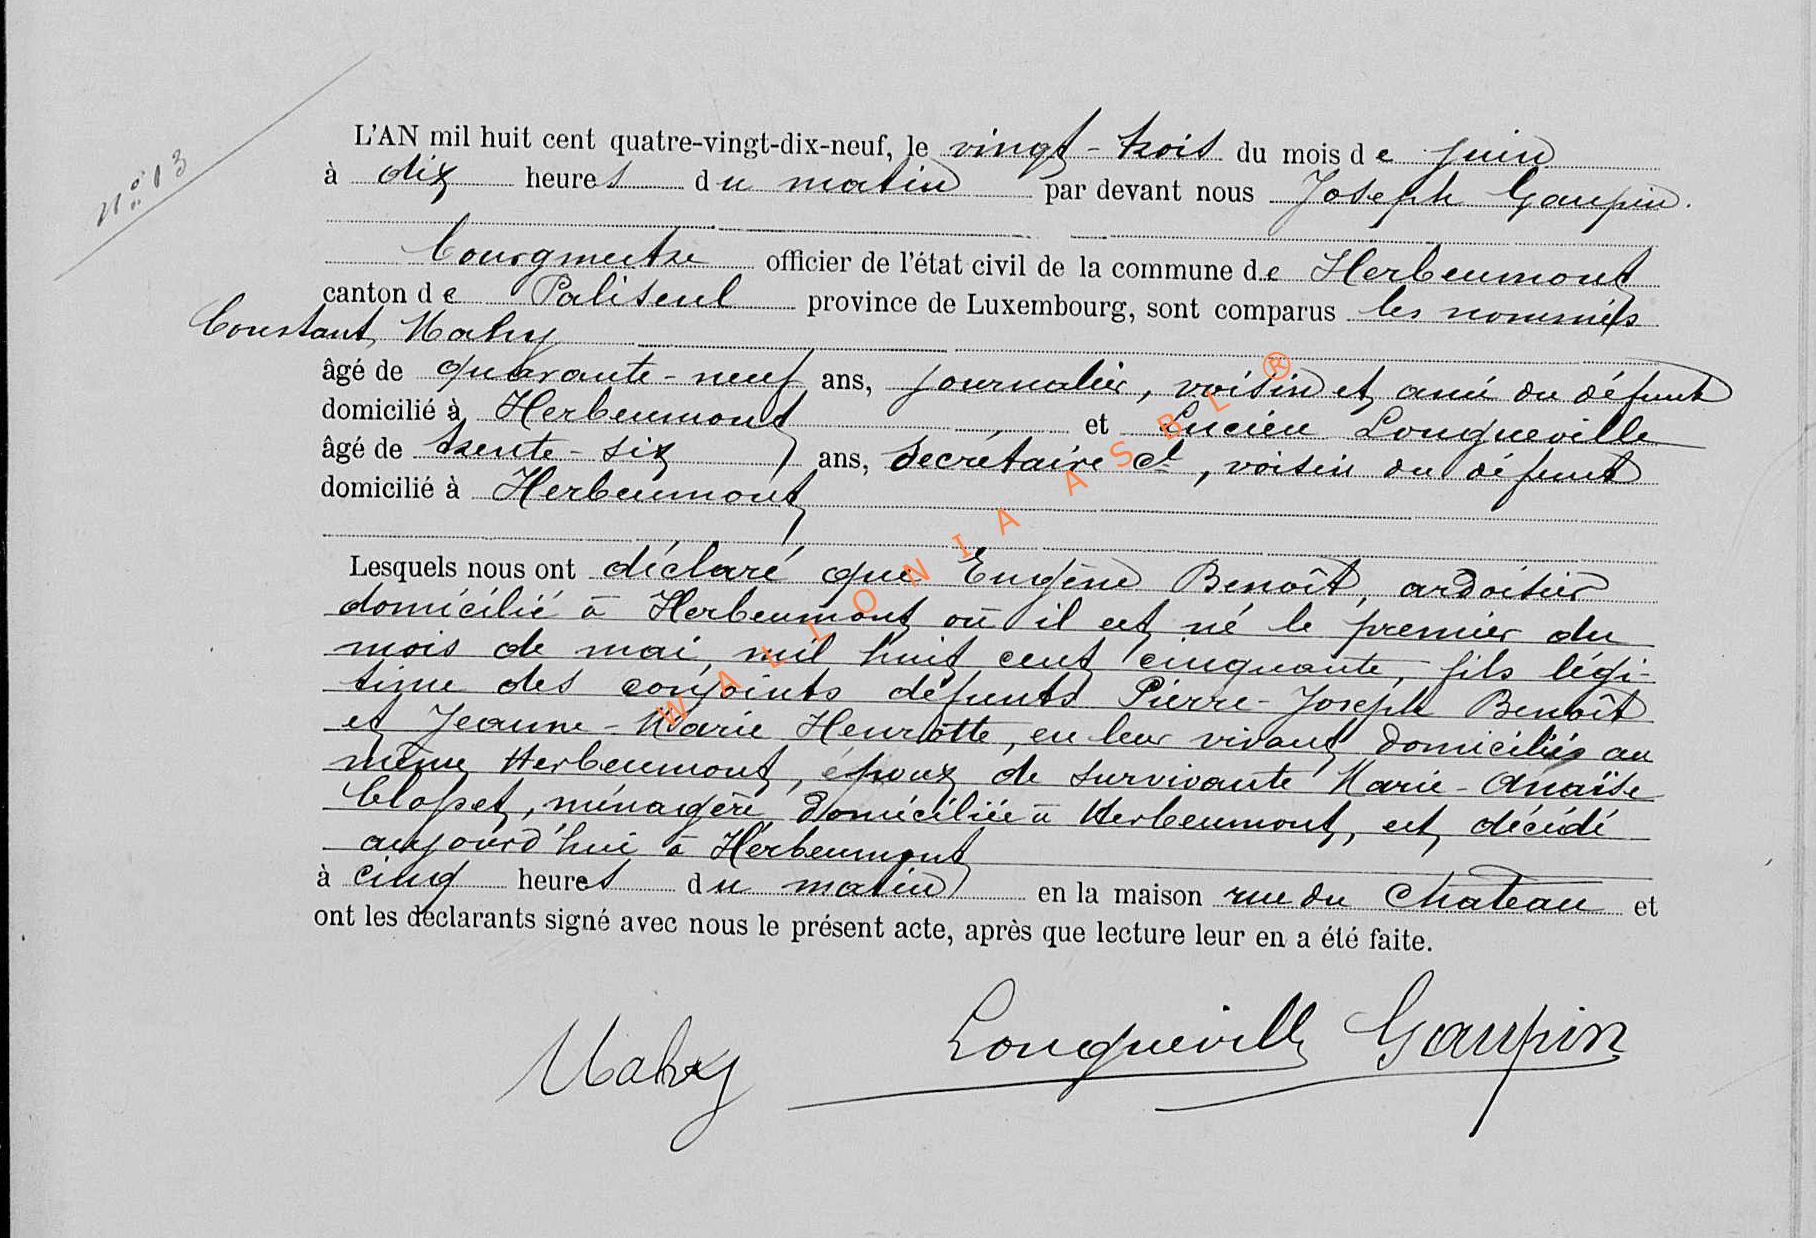 N° 13
L'AN mil huit cent quatre-vingt-dix-neuf, le vingt-trois du mois de juin
à dix heures du matin par devant nous Joseph Gaupin.
bourgmestre officier de l'état civil de la commune de Herbeumont
canton de Paliseul province de Luxembourg, sont comparus les nommés
Constant Mahy
âgé de quarante-neuf ans, journalier, voisin et ami du défunt
domicilié à Herbeumont et Lucien Longueville
âgé de trente-six ans, secrétaire cl, voisin du défunt
domicilié à Herbeumont
Lesquels nous ont déclaré que Eugène Benoît, ardoisier
domicilié à Herbeumont où il est né le premier du
mois de mai, mil huit cent cinquante, fils légi-
time des conjoints défunts Pierre-Joseph Benoît
et Jeanne-Marie Henrotte, en leur vivant domiciliés au
même Herbeumont, époux de survivante Marie-Anaïse
Closset, ménagère domiciliée à Herbeumont, est décédé
aujourd'hui à Herbeumont
à cinq heures du matin en la maison rue du Chateau et
ont les déclarants signé avec nous le présent acte, après que lecture leur en a été faite.
Mahy Longueville Gaupin
WALLONIA ASBL ®